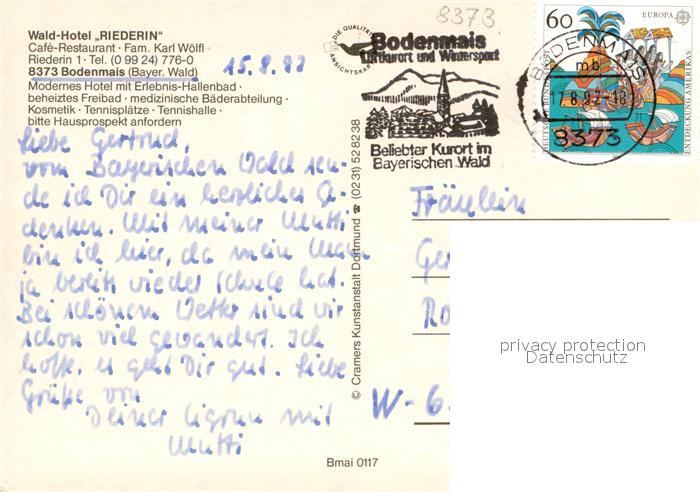 Wald-Hotel „RIEDERIN“
Café-Restaurant · Fam. Karl Wölfl
Riederin 1 · Tel. (0 99 24) 776-0
8373 Bodenmais (Bayer. Wald)
Modernes Hotel mit Erlebnis-Hallenbad ·
beheiztes Freibad · medizinische Bäderabteilung ·
Kosmetik · Tennisplätze · Tennishalle ·
bitte Hausprospekt anfordern
15.8.92
Liebe Gertrud,
vom Bayerischen Wald sen-
de ich Dir ein herzliches Ge-
denken. Mit meiner Mutti
bin ich hier, da mein Mann
ja bereits wieder Schule hat.
Bei schönem Wetter sind wir
schon viel gewandert. Ich
hoffe, es geht Dir gut. Liebe
Grüße von
Deiner Sigrun mit
Mutti
DIE QUALITÄTS
ANSICHTSKAR
© Cramers Kunstanstalt Dortmund ☎ (0231) 528238
Bmai 0117
8373
Bodenmais
Luftkurort und Wintersport
Beliebter Kurort im
Bayerischen Wald
BODENMAIS
mb
17.8.92-18
8373
60
EUROPA
DEUTSCHE BUNDESPOST
ENTDECKUNG AMERIKAS
Fräulein
Ger
Ro
W-6.
privacy protection
Datenschutz